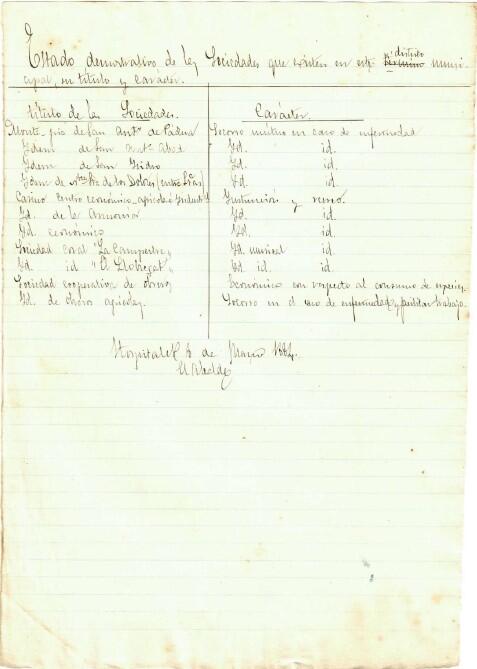 Estado demostrativo de las Sociedades que existen en este término distrito munici-
cipal, su título y carácter.
título de las Sociedades. Carácter.
Monte-pio de San Antº de Padua Socorro mútuo en caso de enfermedad
Ydem de San Antº Abad Yd. id.
Ydem de San Isidro Yd. id.
Ydem de Ntra. Sra. de los Dolores (entre Sras) Yd. id.
Casino Centro económico-agrícola é industrial Instrucción y recreo.
Yd. de la Armonía Yd. id.
Yd. económico Yd. id.
Sociedad coral "La Campestre" Yd. musical id.
Yd. id "El Llobregat" Yd. id. id.
Sociedad cooperativa de obreros Económico con respecto al consumo de especies.
Yd. de obreros agrícolas Socorro en el caso de enfermedad y trabajo.
Hospitalet de Marzo 1884.
El Alcalde